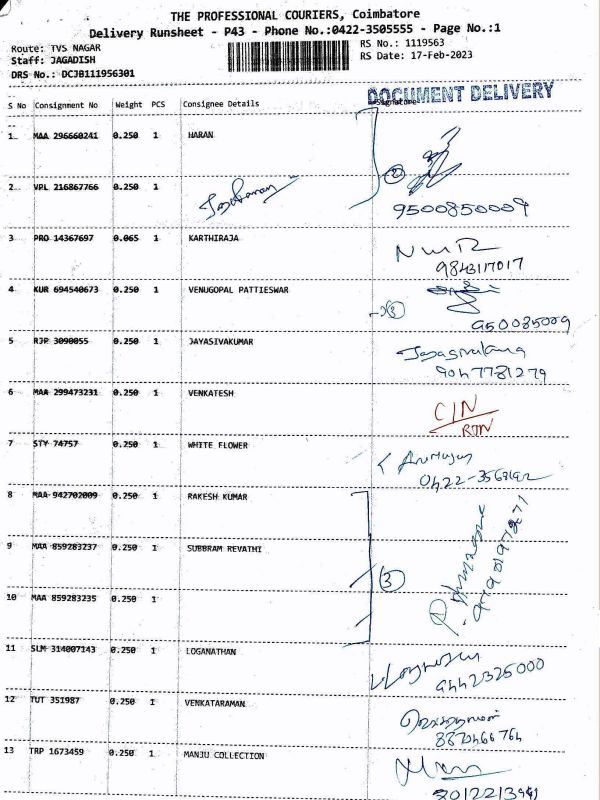 THE PROFESSIONAL COURIERS, Coimbatore
Delivery Runsheet - P43 - Phone No.:0422-3505555 - Page No.:1
Route: TVS NAGAR
RS No.: 1119563
Staff: JAGADISH
RS Date: 17-Feb-2023
DRS No.: DCJB111956301
DOCUMENT DELIVERY
S No Consignment No Weight PCS Consignee Details Signature
1 MAA 296660241 0.250 1 HARAN
2
2 VPL 216867766 0.250 1
9500850009
3 PRO 14367697 0.065 1 KARTHIRAJA
9843117017
4 KUR 694540673 0.250 1 VENUGOPAL PATTIESWAR
3
950085009
5 RJP 3090055 0.250 1 JAYASIVAKUMAR
Jayasivakuma
9047781279
6 MAA 299473231 0.250 1 VENKATESH
C/N
RTN
7 STY 74757 0.250 1 WHITE FLOWER
8 MAA 942702009 0.250 1 RAKESH KUMAR
9 MAA 859283237 0.250 1 SUBBRAM REVATHI
3
10 MAA 859283235 0.250 1
11 SLM 314007143 0.250 1 LOGANATHAN
9442325000
12 TUT 351987 0.250 1 VENKATARAMAN
13 TRP 1673459 0.250 1 MANJU COLLECTION